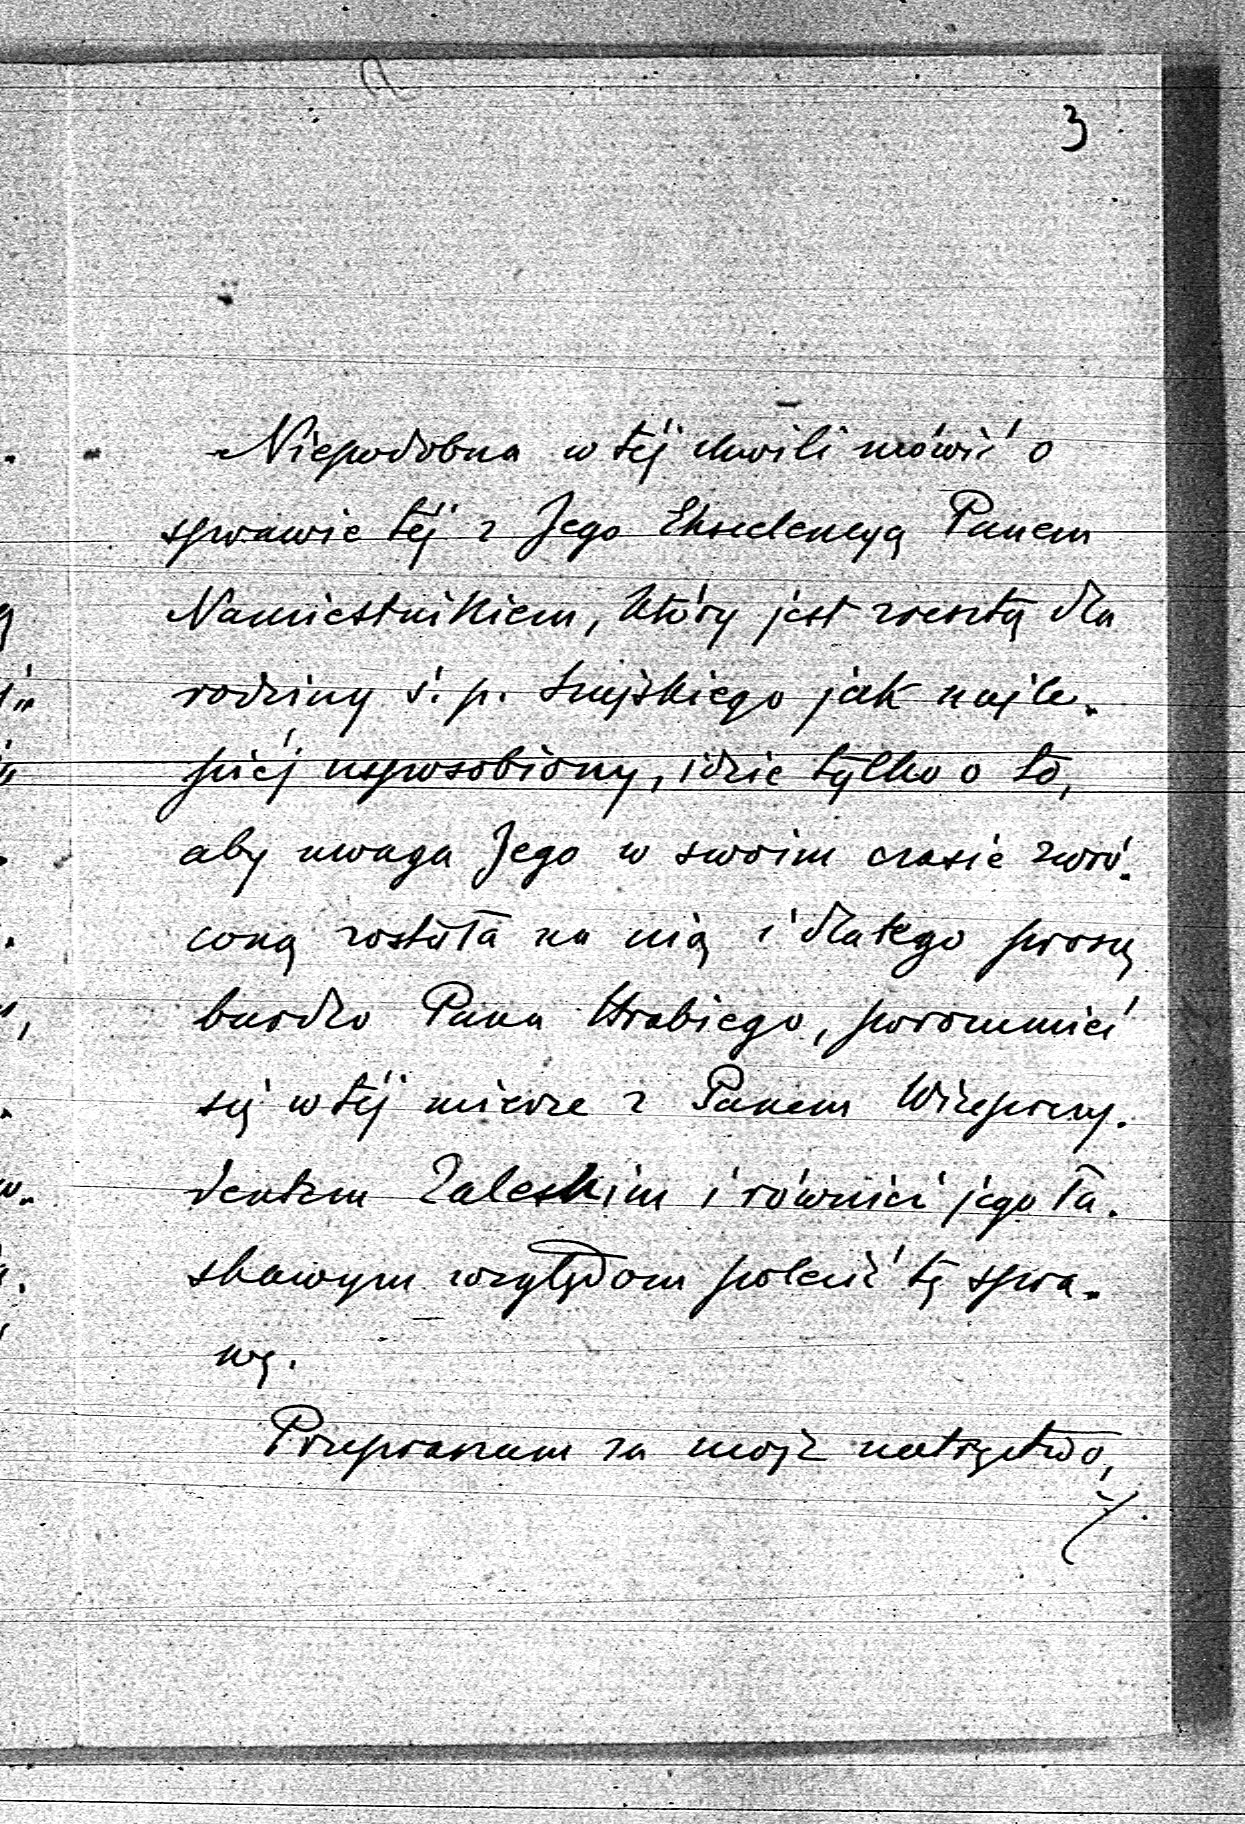 3
Niepodobna w téj chwili mówić o
sprawie téj z Jego Ekscelencyą Panem
Namiestnikiem, który jest zresztą dla
rodziny ś. p. Szujskiego jak najle-
piéj usposobiony, idzie tylko o to,
aby uwaga Jego w swoim czasie zwró-
coną została na nią i dlatego proszę
bardzo Pana Hrabiego, porozumieć
się w téj mierze z Panem Wiceprezy-
dentem Zaleskim i również jego ła-
skawym względom polecić tę spra-
wę.
Przepraszam za moje natręctwo,